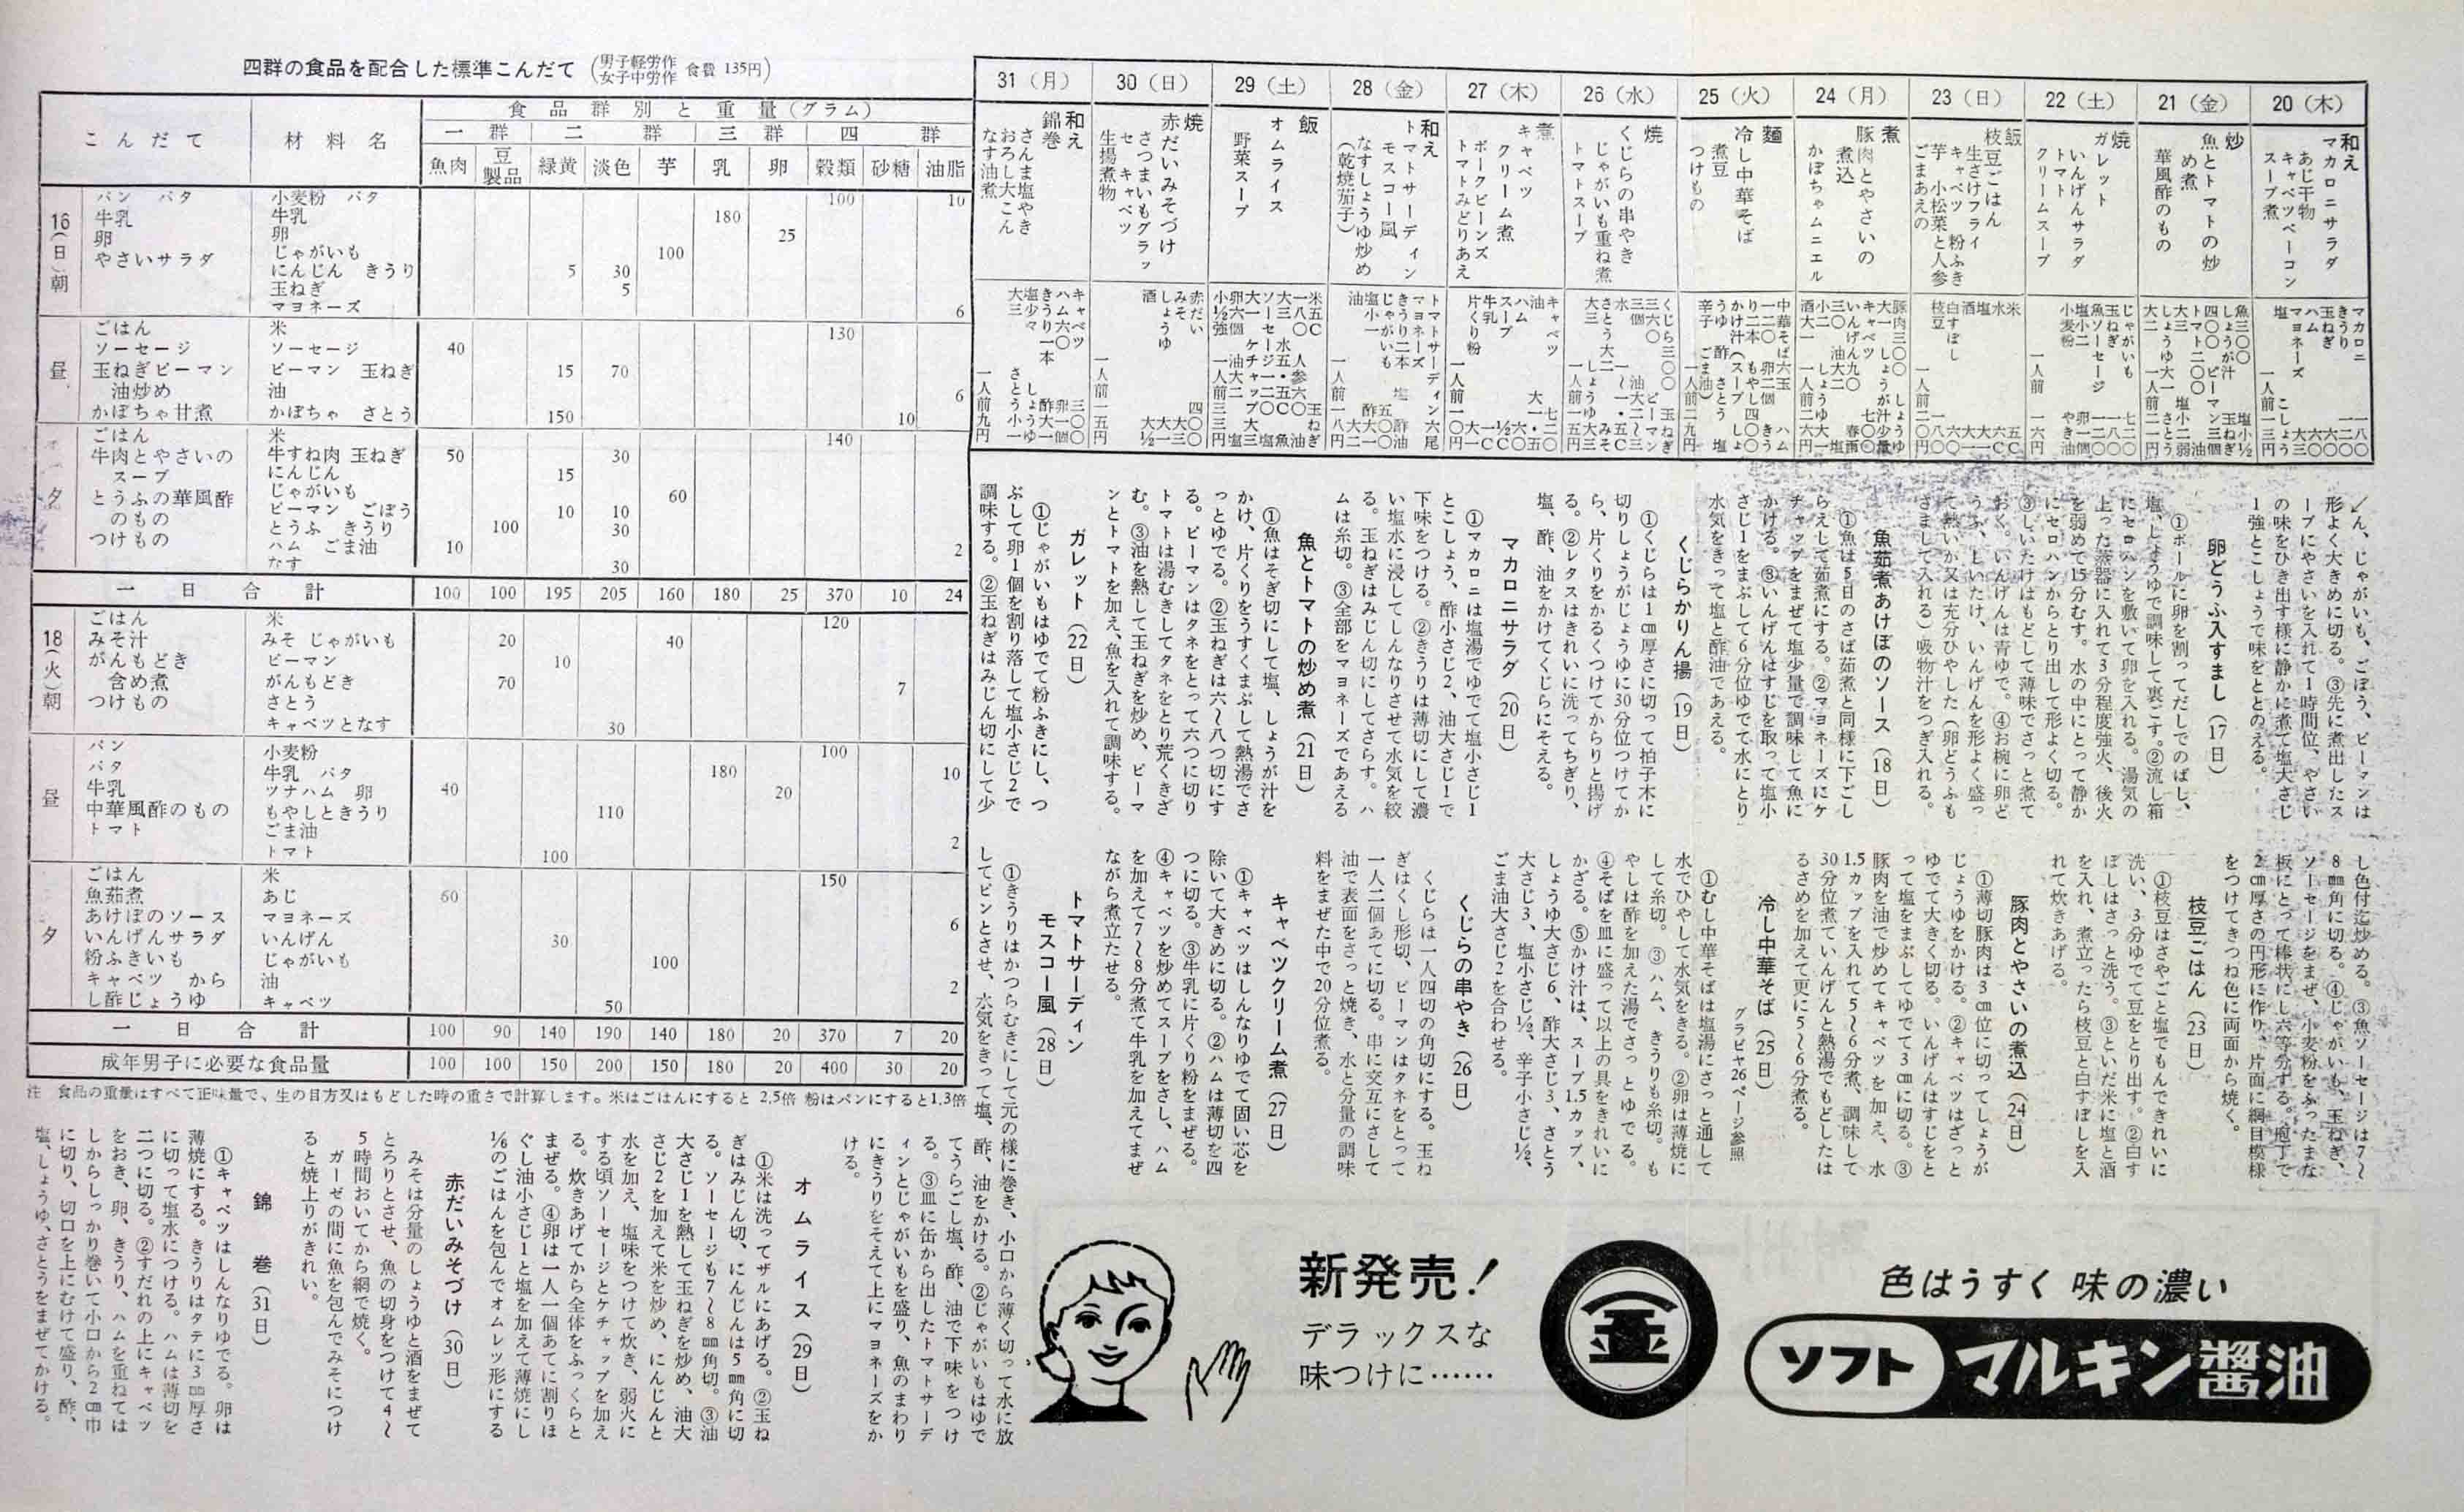 四群の食品を配合した標準こんだて (男子軽労作 女子中労作 食費 135円)
こんだて 材料名 食品群別と重量(グラム)
一群 二群 三群 四群
魚肉 豆製品 緑黄 淡色 芋 乳 卵 穀類 砂糖 油脂
16(日)朝
パン バタ 小麦粉 バタ 100 10
牛乳 牛乳 180
卵 卵 25
やさいサラダ じゃがいも 100
にんじん きうり 5 30
玉ねぎ 5
マヨネーズ 6
昼
ごはん 米 130
ソーセージ ソーセージ 40
玉ねぎピーマン ピーマン 玉ねぎ 15 70
油炒め 油 6
かぼちゃ甘煮 かぼちゃ さとう 150 10
夕
ごはん 米 140
牛肉とやさいの 牛すね肉 玉ねぎ 50 30
スープ にんじん 15
とうふの華風酢 じゃがいも 60
のもの ピーマン ごぼう 10 10
つけもの とうふ きうり 100 30
ハム ごま油 10 2
なす 30
一日合計 100 100 195 205 160 180 25 370 10 24
18(火)朝
ごはん 米 120
みそ汁 みそ じゃがいも 20 40
がんもどき ピーマン 10
含め煮 がんもどき 70
つけもの さとう 7
キャベツとなす 30
昼
パン 小麦粉 100
バタ 牛乳 バタ 180 10
牛乳 ツナハム 卵 40 20
中華風酢のもの もやしときうり 110
トマト ごま油 2
トマト 100
夕
ごはん 米 150
魚茹煮 あじ 60
あけぼのソース マヨネーズ 6
いんげんサラダ いんげん 30
粉ふきいも じゃがいも 100
キャベツ から 油 2
し酢じょうゆ キャベツ 50
一日合計 100 90 140 190 140 180 20 370 7 20
成年男子に必要な食品量 100 100 150 200 150 180 20 400 30 20
注 食品の重量はすべて正味量で、生の目方又はもどした時の重さで計算します。米はごはんにすると 2.5倍 粉はパンにすると1.3倍
20(木)
和え
マカロニサラダ
あじ干物
キャベツベーコン
スープ煮
21(金)
炒
魚とトマトの炒
め煮
華風酢のもの
22(土)
焼
ガレット
いんげんサラダ
トマト
クリームスープ
23(日)
飯
枝豆ごはん
生さけフライ
キャベツ 粉ふき
芋 小松菜と人参
ごまあえの
24(月)
煮
豚肉とやさいの
煮込
かぼちゃムニエル
25(火)
麺
冷し中華そば
煮豆
つけもの
26(水)
焼
くじらの串やき
じゃがいも重ね煮
トマトスープ
27(木)
煮
キャベツ
クリーム煮
ポークビーンズ
トマトみどりあえ
28(金)
和え
トマトサーディン
モスコー風
なすしょうゆ炒め
(乾焼茄子)
29(土)
飯
オムライス
野菜スープ
30(日)
焼
赤だいみそづけ
さつまいもグラッ
セ キャベツ
生揚煮物
31(月)
和え
錦巻
さんま塩やき
おろし大こん
なす油煮
ん、じゃがいも、ごぼう、ピーマンは
形よく大きめに切る。③先に煮出したス
ープにやさいを入れて1時間位、やさい
の味をひき出す様に静かに煮て塩大さじ
1強とこしょうで味をととのえる。
卵どうふ入すまし(17日)
①ボールに卵を割ってだしでのばし、
塩、しょうゆで調味して裏ごす。②流し箱
にセロハンを敷いて卵を入れる。湯気の
上った蒸器に入れて3分程度強火、後火
を弱めて15分むす。水の中にとって静か
にセロハンからとり出して形よく切る。
③しいたけはもどして薄味でさっと煮て
おく。いんげんは青ゆで。④お椀に卵ど
うふ、しいたけ、いんげんを形よく盛っ
て熱いか又は充分ひやした(卵どうふも
さまして入れる)吸物汁をつぎ入れる。
魚茹煮あけぼのソース(18日)
①魚は5日のさば茹煮と同様に下ごし
らえして茹煮にする。②マヨネーズにケ
チャップをまぜて塩少量で調味して魚に
かける。③いんげんはすじを取って塩小
さじ1をまぶして6分位ゆでて水にとり
水気をきって塩と酢油であえる。
くじらかりん揚(19日)
①くじらは1㎝厚さに切って拍子木に
切りしょうがじょうゆに30分位つけてか
ら、片くりをかるくつけてからりと揚げ
る。②レタスはきれいに洗ってちぎり、
塩、酢、油をかけてくじらにそえる。
マカロニサラダ(20日)
①マカロニは塩湯でゆでて塩小さじ1
とこしょう、酢小さじ2、油大さじ1で
下味をつける。②きうりは薄切にして濃
い塩水に浸してしんなりさせて水気を絞
る。玉ねぎはみじん切にしてさらす。ハ
ムは糸切。③全部をマヨネーズであえる
魚とトマトの炒め煮(21日)
①魚はそぎ切にして塩、しょうが汁を
かけ、片くりをうすくまぶして熱湯でさ
っとゆでる。②玉ねぎは六〜八つ切にす
る。ピーマンはタネをとって六つに切り
トマトは湯むきしてタネをとり荒くきざ
む。③油を熱して玉ねぎを炒め、ピーマ
ンとトマトを加え、魚を入れて調味する。
ガレット(22日)
①じゃがいもはゆでて粉ふきにし、つ
ぶして卵1個を割り落して塩小さじ2で
調味する。②玉ねぎはみじん切にして少
し色付迄炒める。③魚ソーセージは7〜
8㎜角に切る。④じゃがいも、玉ねぎ、
ソーセージをまぜ、小麦粉をふったまな
板にとって棒状にし六等分する。庖丁で
2㎝厚さの円形に作り、片面に網目模様
をつけてきつね色に両面から焼く。
枝豆ごはん(23日)
①枝豆はさやごと塩でもんできれいに
洗い、3分ゆでて豆をとり出す。②白す
ぼしはさっと洗う。③といだ米に塩と酒
を入れ、煮立ったら枝豆と白すぼしを入
れて炊きあげる。
豚肉とやさいの煮込(24日)
①薄切豚肉は3㎝位に切ってしょうが
じょうゆをかける。②キャベツはざっと
ゆでて大きく切る。いんげんはすじをと
って塩をまぶしてゆでて3㎝に切る。③
豚肉を油で炒めてキャベツを加え、水
1.5カップを入れて5〜6分煮、調味して
30分位煮ていんげんと熱湯でもどしたは
るさめを加えて更に5〜6分煮る。
冷し中華そば(25日)
グラビヤ26ページ参照
①むし中華そばは塩湯にさっと通して
水でひやして水気をきる。②卵は薄焼に
して糸切。③ハム、きうりも糸切。も
やしは酢を加えた湯でさっとゆでる。
④そばを皿に盛って以上の具をきれいに
かざる。⑤かけ汁は、スープ1.5カップ、
しょうゆ大さじ6、酢大さじ3、さとう
大さじ3、塩小さじ½、辛子小さじ½、
ごま油大さじ2を合わせる。
くじらの串やき(26日)
くじらは一人四切の角切にする。玉ね
ぎはくし形切、ピーマンはタネをとって
一人二個あてに切る。串に交互にさして
油で表面をさっと焼き、水と分量の調味
料をまぜた中で20分位煮る。
キャベツクリーム煮(27日)
①キャベツはしんなりゆでて固い芯を
除いて大きめに切る。②ハムは薄切を四
つに切る。③牛乳に片くり粉をまぜる。
④キャベツを炒めてスープをさし、ハム
を加えて7〜8分煮て牛乳を加えてまぜ
ながら煮立たせる。
トマトサーディン
モスコー風(28日)
①きうりはかつらむきにして元の様に巻き、小口から薄く切って水に放
してピンとさせ、水気をきって塩、酢、油をかける。②じゃがいもはゆで
てうらごし塩、酢、油で下味をつけ
る。③皿に缶から出したトマトサーデ
ィンとじゃがいもを盛り、魚のまわり
にきうりをそえて上にマヨネーズをか
ける。
オムライス(29日)
①米は洗ってザルにあげる。②玉ね
ぎはみじん切、にんじんは5㎜角に切
る。ソーセージも7〜8㎜角切。③油
大さじ1を熱して玉ねぎを炒め、油大
さじ2を加えて米を炒め、にんじんと
水を加え、塩味をつけて炊き、弱火に
する頃ソーセージとケチャップを加え
る。炊きあげてから全体をふっくらと
まぜる。④卵は一人一個あてに割りほ
ぐし油小さじ1と塩を加えて薄焼にし
⅙のごはんを包んでオムレツ形にする
赤だいみそづけ(30日)
みそは分量のしょうゆと酒をまぜて
とろりとさせ、魚の切身をつけて4〜
5時間おいてから網で焼く。
ガーゼの間に魚を包んでみそにつけ
ると焼上りがきれい。
錦巻(31日)
①キャベツはしんなりゆでる。卵は
薄焼にする。きうりはタテに3㎜厚さ
に切って塩水につける。ハムは薄切を
二つに切る。②すだれの上にキャベツ
をおき、卵、きうり、ハムを重ねては
しからしっかり巻いて小口から2㎝巾
に切り、切口を上にむけて盛り、酢、
塩、しょうゆ、さとうをまぜてかける。
新発売!
デラックスな
味つけに……
金
色はうすく 味の濃い
ソフト マルキン醤油